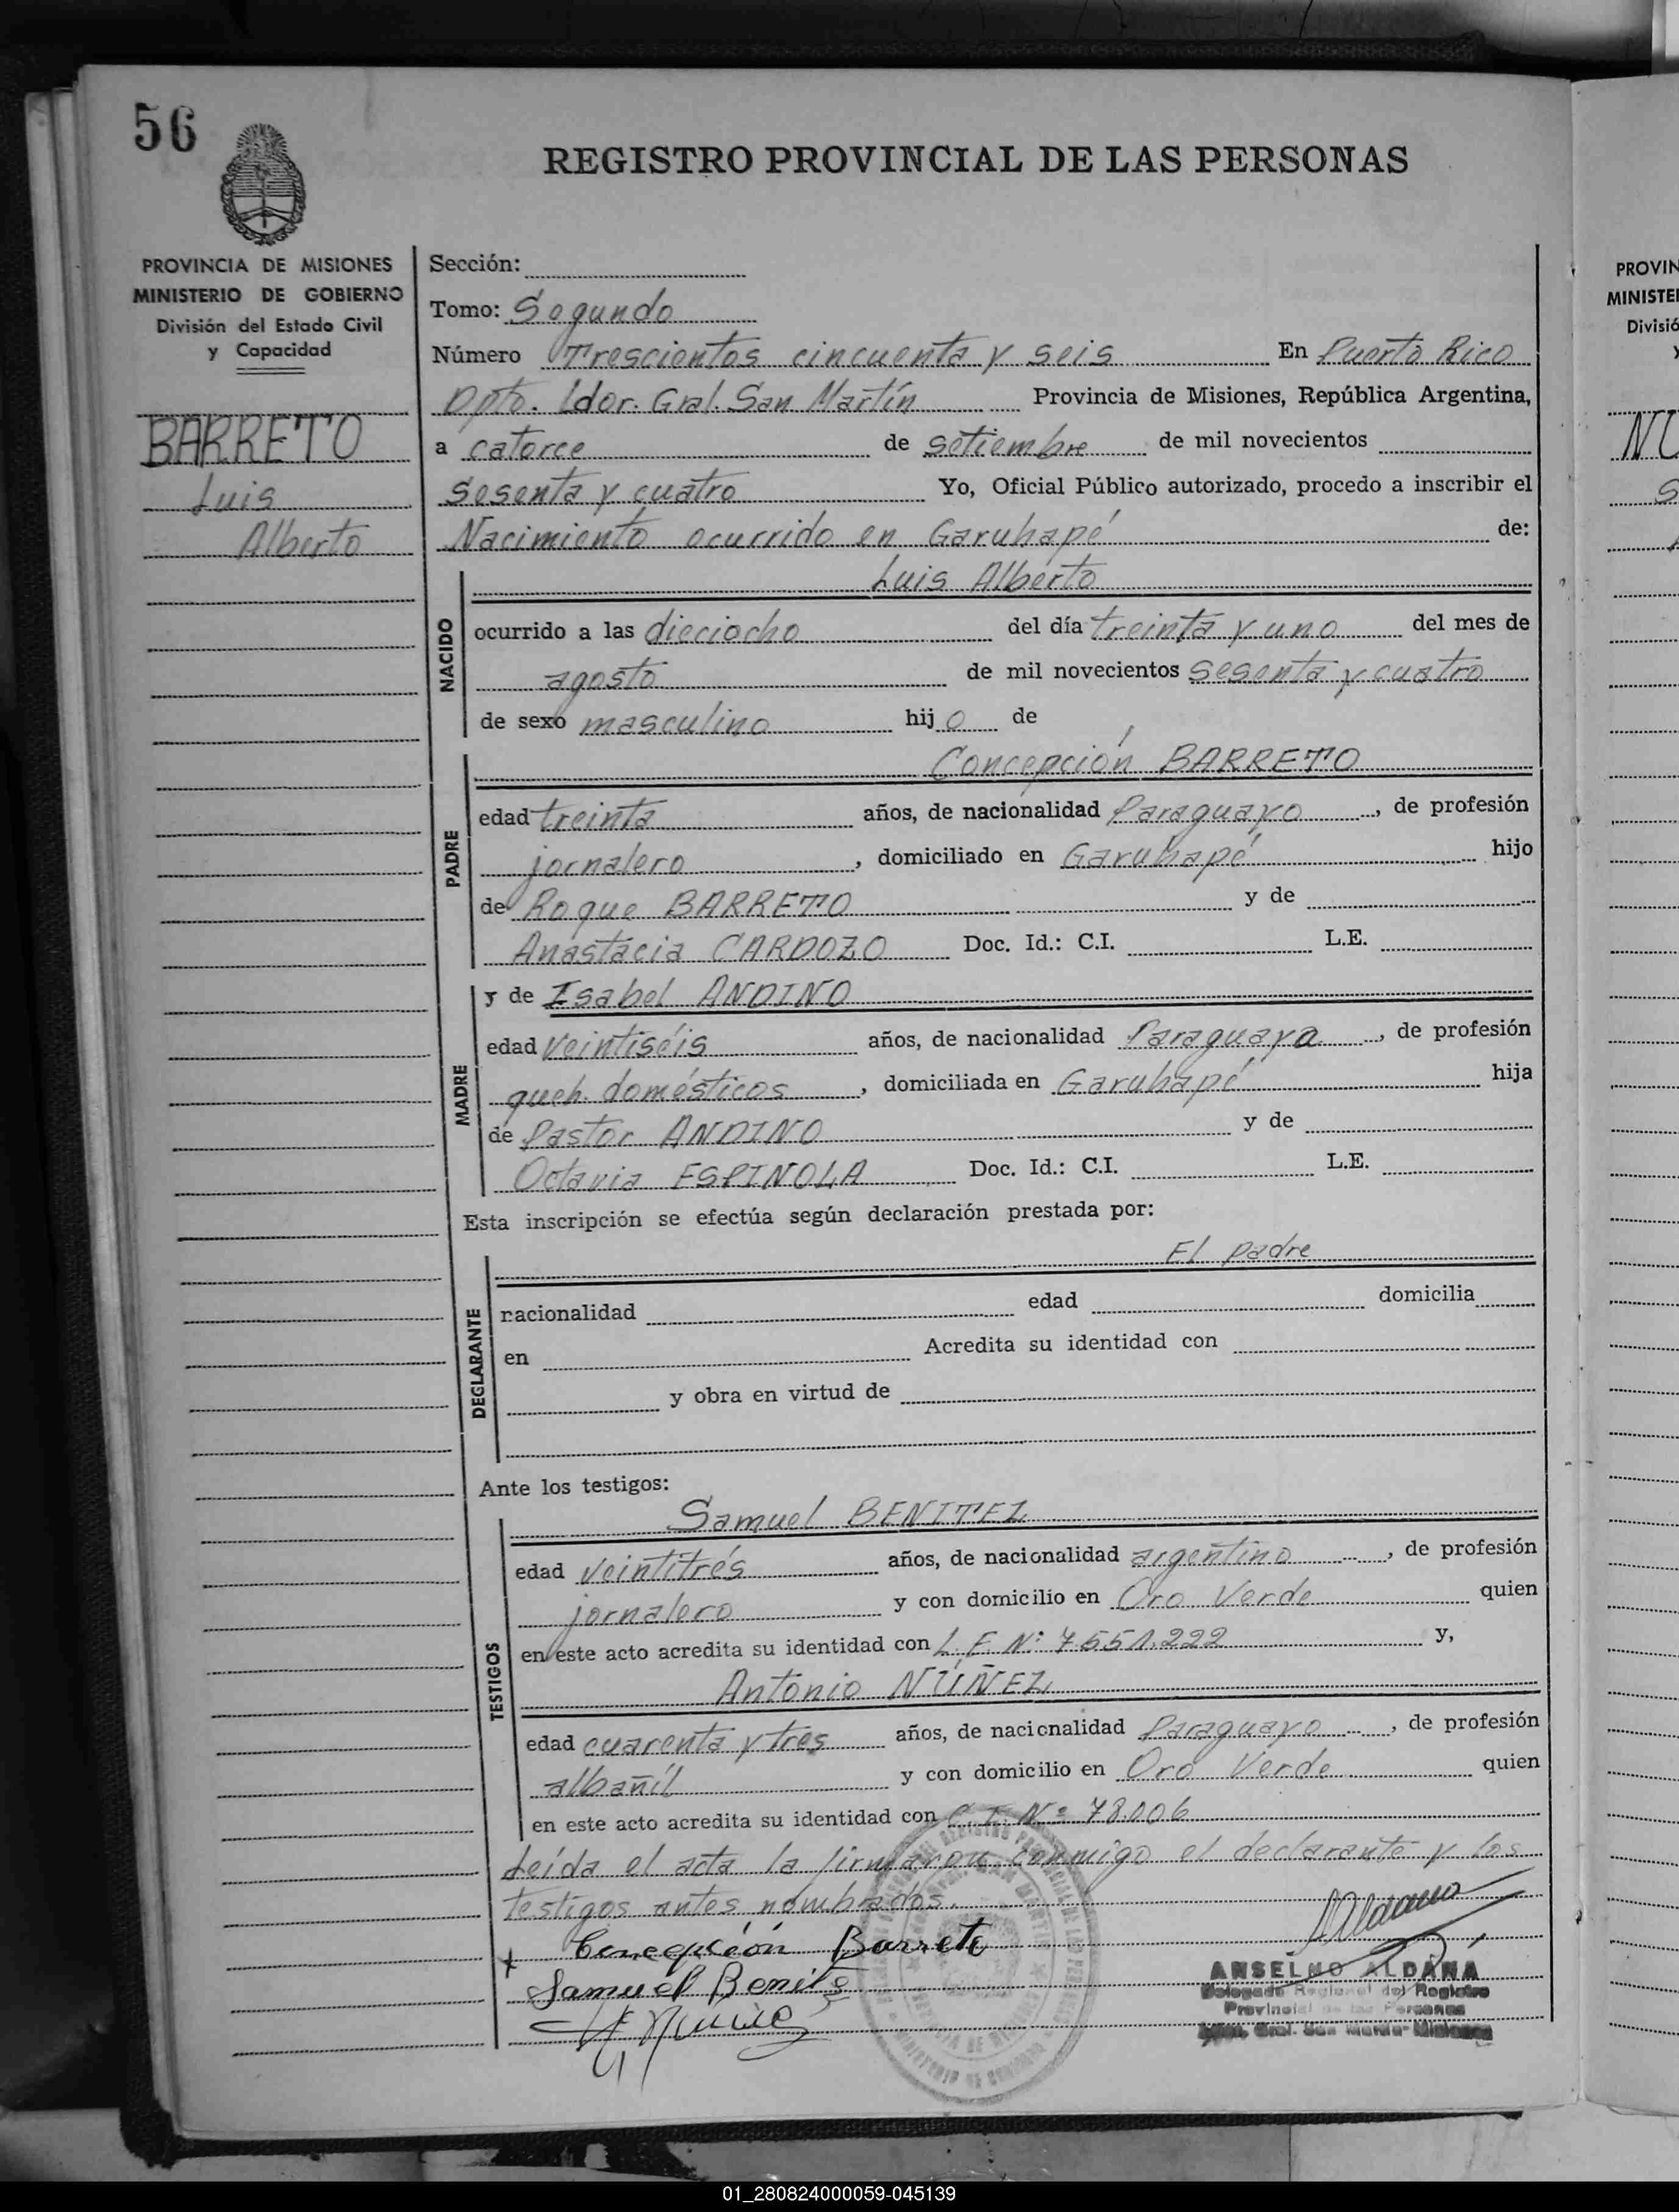 56
REGISTRO PROVINCIAL DE LAS PERSONAS
PROVINCIA DE MISIONES
MINISTERIO DE GOBIERNO
División del Estado Civil
y Capacidad
BARRETO
Luis
Alberto
Sección:
Tomo: Segundo
Número Trescientos cincuenta y seis En Puerto Rico
Dpto. Ldor. Gral. San Martín Provincia de Misiones, República Argentina,
a catorce de setiembre de mil novecientos
sesenta y cuatro Yo, Oficial Público autorizado, procedo a inscribir el
Nacimiento ocurrido en Garuhapé de:
NACIDO
Luis Alberto
ocurrido a las dieciocho del día treinta y uno del mes de
agosto de mil novecientos sesenta y cuatro
de sexo masculino hijo de
PADRE
Concepción BARRETO
edad treinta años, de nacionalidad Paraguayo, de profesión
jornalero, domiciliado en Garuhapé hijo
de Roque BARRETO y de
Anastacia CARDOZO Doc. Id.: C.I. L.E.
MADRE
y de Isabel ANDINO
edad veintiséis años, de nacionalidad Paraguaya, de profesión
queh. domésticos, domiciliada en Garuhapé hija
de Pastor ANDINO y de
Octavia ESPINOLA Doc. Id.: C.I. L.E.
Esta inscripción se efectúa según declaración prestada por:
DECLARANTE
El padre
nacionalidad edad domicilia
en Acredita su identidad con
y obra en virtud de
Ante los testigos:
TESTIGOS
Samuel BENITEZ
edad veintitrés años, de nacionalidad argentino, de profesión
jornalero y con domicilio en Oro Verde quien
en este acto acredita su identidad con L.E. Nº 7.551.222 y,
Antonio NÚÑEZ
edad cuarenta y tres años, de nacionalidad Paraguayo, de profesión
albañil y con domicilio en Oro Verde quien
en este acto acredita su identidad con C.I. Nº 78.006
Leída el acta la firmaron conmigo el declarante y los
testigos antes nombrados.
Concepción Barreto
Samuel Benitez
ANSELMO ALDANA
Delegado Regional del Registro
Provincial de las Personas
Gral. San Martín - Misiones
PROVIN
MINISTE
Divisió
y
NU
S
01_280824000059-045139